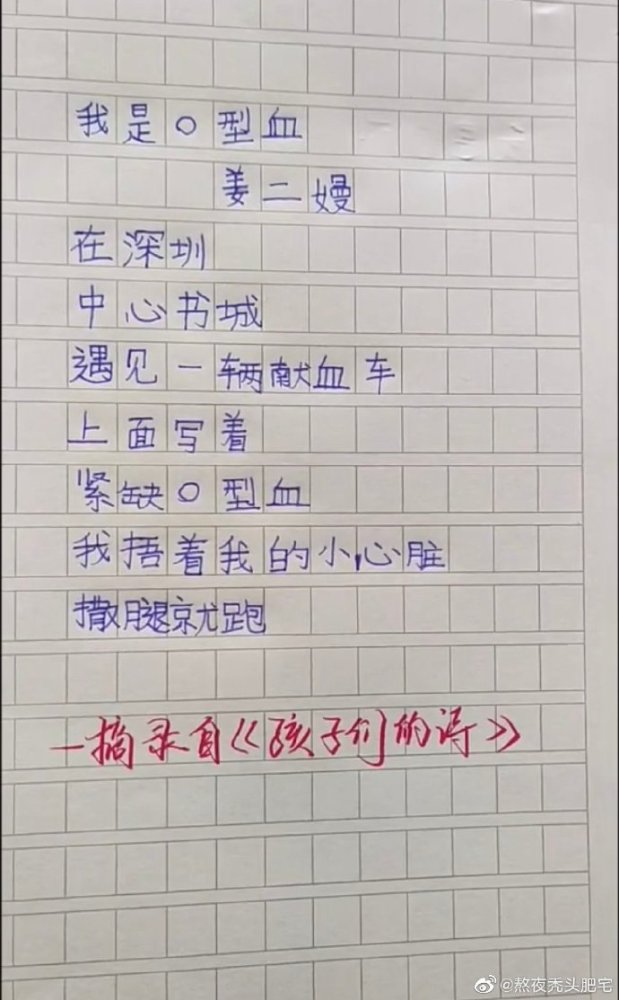 我是O型血
姜二嫚
在深圳
中心书城
遇见一辆献血车
上面写着
紧缺O型血
我捂着我的小心脏
撒腿就跑
一摘录自《孩子们的诗》
@熬夜秃头肥宅